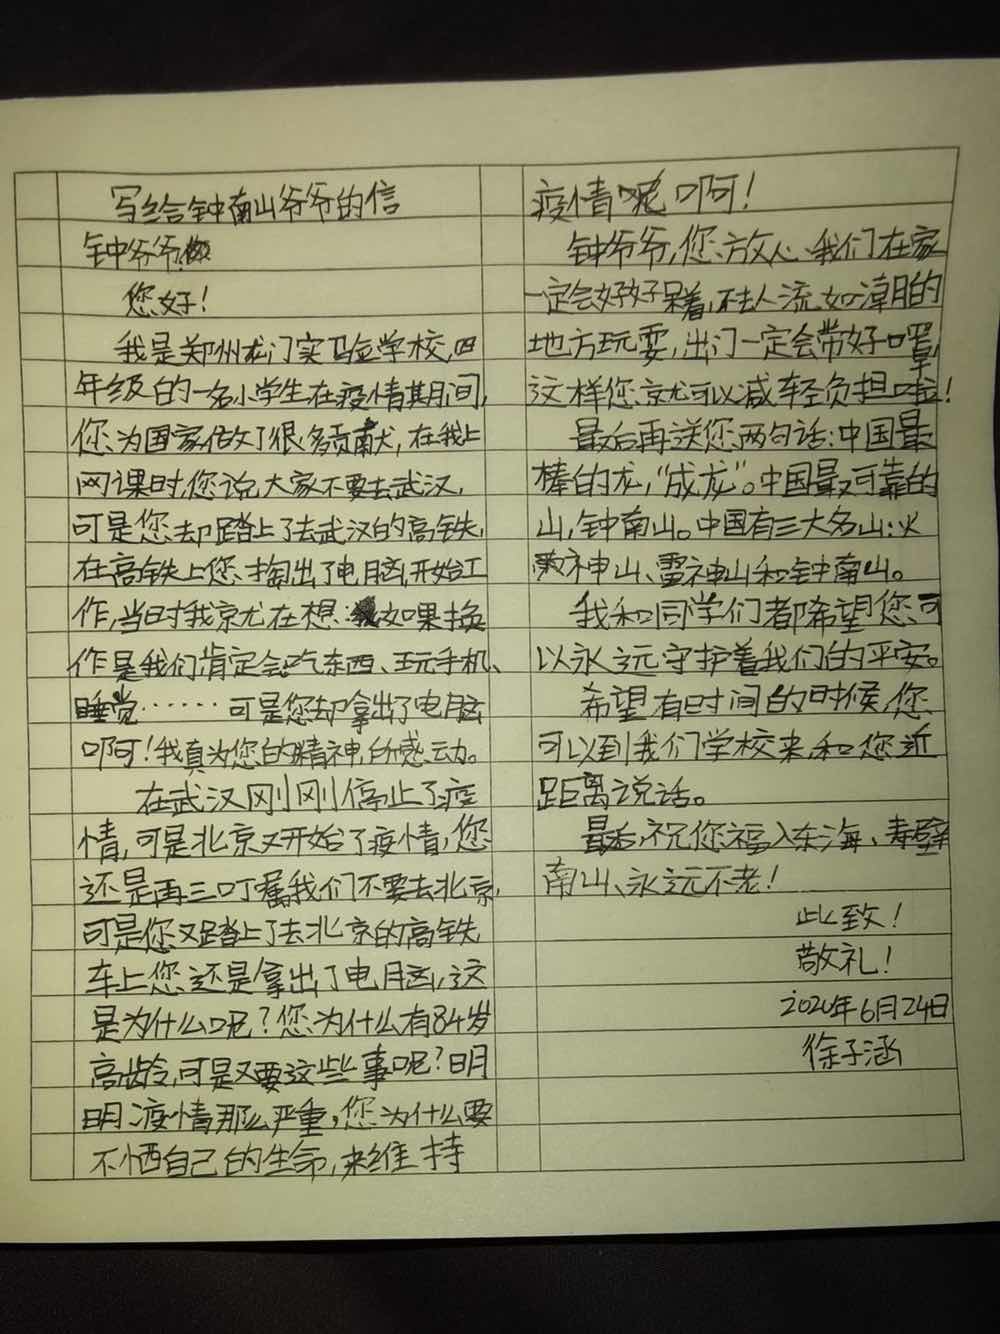 写给钟南山爷爷的信
钟爷爷
您好！
我是郑州龙门实验学校,四
年级的一名小学生,在疫情其月间,
您为国家做了很多贡献,在我上
网课时,您说大家不要去武汉,
可是您却踏上了去武汉的高铁,
在高铁上您掏出了电脑,开始工
作,当时我就在想:如果换
作是我们肯定会吃东西、玩手机、
睡觉……可是您却拿出了电脑
啊！我真为您的精神,所感动。
在武汉刚刚停止了疫
情,可是北京又开始了疫情,您
还是再三叮嘱我们不要去北京,
可是您又踏上了去北京的高铁
车上您还是拿出了电脑,这
是为什么呢？您为什么有84岁
高龄,可是又要这些事呢？明
明疫情那么严重,您为什么要
不惜自己的生命,来维持
疫情呢啊！
钟爷爷,您放心,我们在家
一定会好好呆着,不去人流如潮的
地方玩耍,出门一定会带好口罩,
这样您就可以减轻负担啦！
最后再送您两句话:中国最
棒的龙,“成龙”。中国最可靠的
山,钟南山。中国有三大名山:火
神山、雷神山和钟南山。
我和同学们都希望您可
以永远守护着我们的平安。
希望有时间的时候,您
可以到我们学校来,和您近
距离说话。
最后,祝您福入东海、寿壁
南山、永远不老！
此致！
敬礼！
2020年6月24日
徐子涵